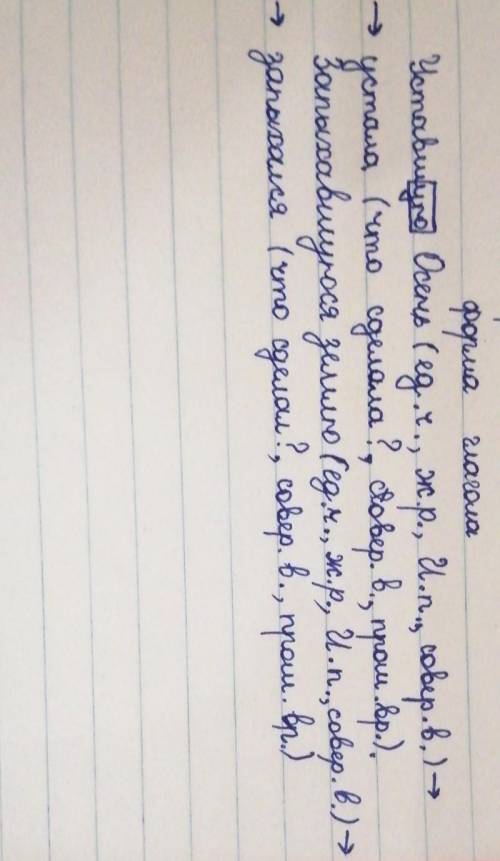 форма глагола
Уставшую Осень (ед.ч., ж.р., И.п., совер.в.) →
→ устала (что сделала?, совер. в., прош. вр.).
Запыхавшуюся землю (ед.ч., ж.р., И.п., совер. в.) →
→ запыхался (что сделал?, совер. в., прош. вр.)